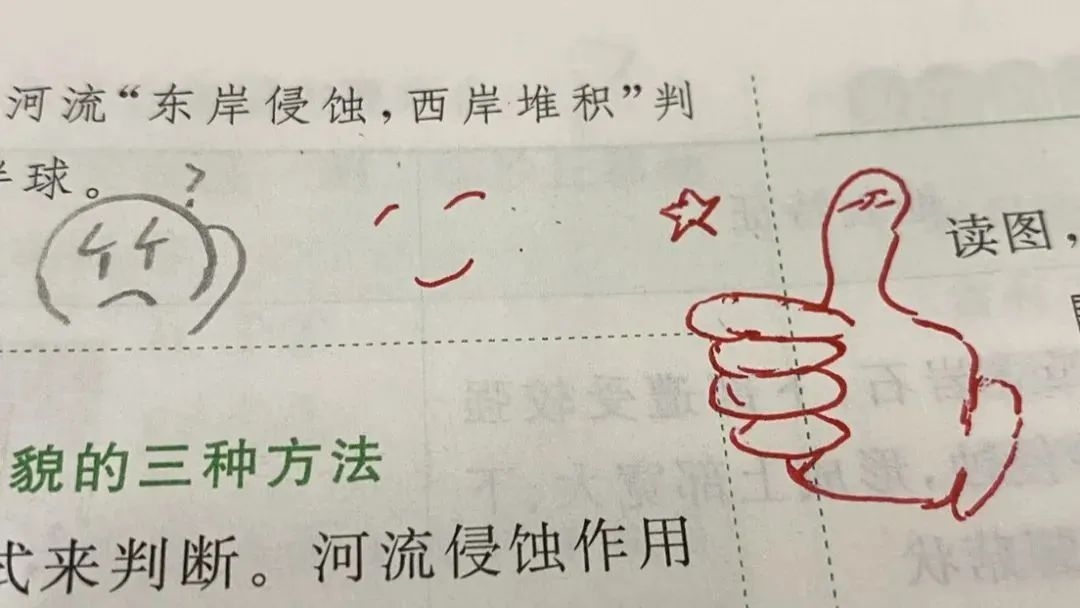 河流“东岸侵蚀,西岸堆积”判
半球。
?
读图,
貌的三种方法
式来判断。河流侵蚀作用